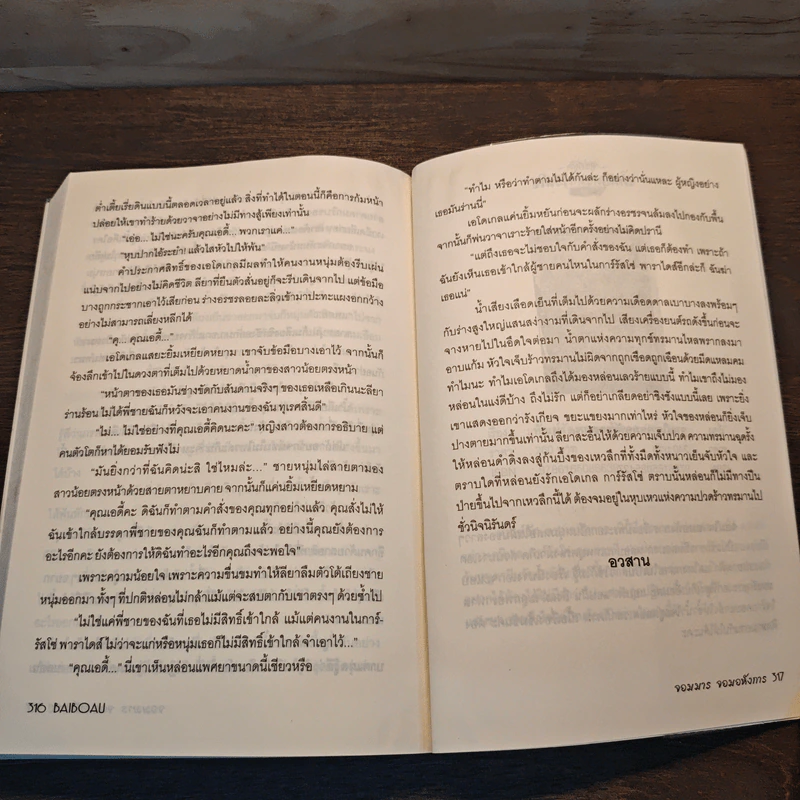 ต่ำเตี้ยเรี่ยดินแบบนี้ตลอดเวลาอยู่แล้ว สิ่งที่ทำได้ในตอนนี้ก็คือการก้มหน้า
ปล่อยให้เขาทำร้ายด้วยวาจาอย่างไม่มีทางสู้เพียงเท่านั้น
“เอ่อ... ไม่ใช่นะครับคุณเอดี้... พวกเราแค่...”
“หุบปากไอ้ระยำ! แล้วไสหัวไปให้พ้น”
คำประกาศิตของเอโดเกลมีผลทำให้คนงานหนุ่มต้องรีบเผ่น
แน่บจากไปอย่างไม่คิดชีวิต ลียาที่ยืนตัวสั่นอยู่ก็จะรีบเดินจากไป แต่ข้อมือ
บางถูกกระชากเอาไว้เสียก่อน ร่างอรชรลอยละลิ่วเข้ามาปะทะแผงอกกว้าง
อย่างไม่สามารถเลี่ยงหลีกได้
“คุ... คุณเอดี้...”
เอโดเกลแสยะยิ้มเหยียดหยาม เขาจับข้อมือบางเอาไว้ จากนั้นก็
จ้องลึกเข้าไปในดวงตาที่เต็มไปด้วยหยาดน้ำตาของสาวน้อยตรงหน้า
“หน้าตาของเธอมันช่างขัดกับสันดานจริงๆ ของเธอเหลือเกินนะลียา
ร่านร้อน ไม่ได้พี่ชายฉันก็หวังจะเอาคนงานของฉัน ทุเรศสิ้นดี”
“ไม่... ไม่ใช่อย่างที่คุณเอดี้คิดนะคะ” หญิงสาวต้องการอธิบาย แต่
คนตัวโตก็หาได้ยอมรับฟังไม่
“มันยิ่งกว่าที่ฉันคิดน่ะสิ ใช่ไหมล่ะ...” ชายหนุ่มไล่สายตามอง
สาวน้อยตรงหน้าด้วยสายตาหยาบคาย จากนั้นก็แค่นยิ้มเหยียดหยาม
“คุณเอดี้คะ ดิฉันก็ทำตามคำสั่งของคุณทุกอย่างแล้ว คุณสั่งไม่ให้
ฉันเข้าใกล้บรรดาพี่ชายของคุณฉันก็ทำตามแล้ว อย่างนี้คุณยังต้องการ
อะไรอีกคะ ยังต้องการให้ดิฉันทำอะไรอีกคุณถึงจะพอใจ”
เพราะความน้อยใจ เพราะความขื่นขมทำให้ลียาลืมตัวโต้เถียงชาย
หนุ่มออกมา ทั้งๆ ที่ปกติหล่อนไม่กล้าแม้แต่จะสบตากับเขาตรงๆ ด้วยซ้ำไป
“ไม่ใช่แค่พี่ชายของฉันที่เธอไม่มีสิทธิ์เข้าใกล้ แม้แต่คนงานในการ์-
รัสโซ่ พาราไดส์ ไม่ว่าจะแก่หรือหนุ่มเธอก็ไม่มีสิทธิ์เข้าใกล้ จำเอาไว้...”
“คุณเอดี้...” นี่เขาเห็นหล่อนแพศยาขนาดนี้เชียวหรือ
316 BAIBOAU
“ทำไม หรือว่าทำตามไม่ได้กันล่ะ ก็อย่างว่านั่นแหละ ผู้หญิงอย่าง
เธอมันร่านนี่”
เอโดเกลแค่นยิ้มหยันก่อนจะผลักร่างอรชรจนล้มลงไปกองกับพื้น
จากนั้นก็พ่นวาจาเราะร้ายใส่หน้าอีกครั้งอย่างไม่คิดปรานี
“แต่ถึงเธอจะไม่ชอบใจกับคำสั่งของฉัน แต่เธอก็ต้องทำ เพราะถ้า
ฉันยังเห็นเธอเข้าใกล้ผู้ชายคนไหนในการ์รัสโซ่ พาราไดส์อีกล่ะก็ ฉันฆ่า
เธอแน่”
น้ำเสียงเลือดเย็นที่เต็มไปด้วยความเดือดดาลเบาบางลงพร้อมๆ
กับร่างสูงใหญ่แสนสง่างามที่เดินจากไป เสียงเครื่องยนต์รถดังขึ้นก่อนจะ
จางหายไปในอึดใจต่อมา น้ำตาแห่งความทุกข์ทรมานไหลพรากลงมา
อาบแก้ม หัวใจเจ็บร้าวทรมานไม่ผิดจากถูกเชือดถูกเฉือนด้วยมีดแหลมคม
ทำไมนะ ทำไมเอโดเกลถึงได้มองหล่อนเลวร้ายแบบนี้ ทำไมเขาถึงไม่มอง
หล่อนในแง่ดีบ้าง ถึงไม่รัก แต่ก็อย่าเกลียดอย่าชิงชังแบบนี้เลย เพราะยิ่ง
เขาแสดงออกว่ารังเกียจ ขยะแขยงมากเท่าไหร่ หัวใจของหล่อนก็ยิ่งเจ็บ
ปางตายมากขึ้นเท่านั้น ลียาสะอื้นไห้ด้วยความเจ็บปวด ความทรมานฉุดรั้ง
ให้หล่อนดำดิ่งลงสู่ก้นบึ้งของเหวลึกที่ทั้งมืดทั้งหนาวเย็นจับหัวใจ และ
ตราบใดที่หล่อนยังรักเอโดเกล การ์รัสโซ่ ตราบนั้นหล่อนก็ไม่มีทางปีน
ป่ายขึ้นไปจากเหวลึกนี้ได้ ต้องจมอยู่ในหุบเหวแห่งความปวดร้าวทรมานไป
ชั่วนิจนิรันดร์
อวสาน
จอมมาร จอมอหังการ 317